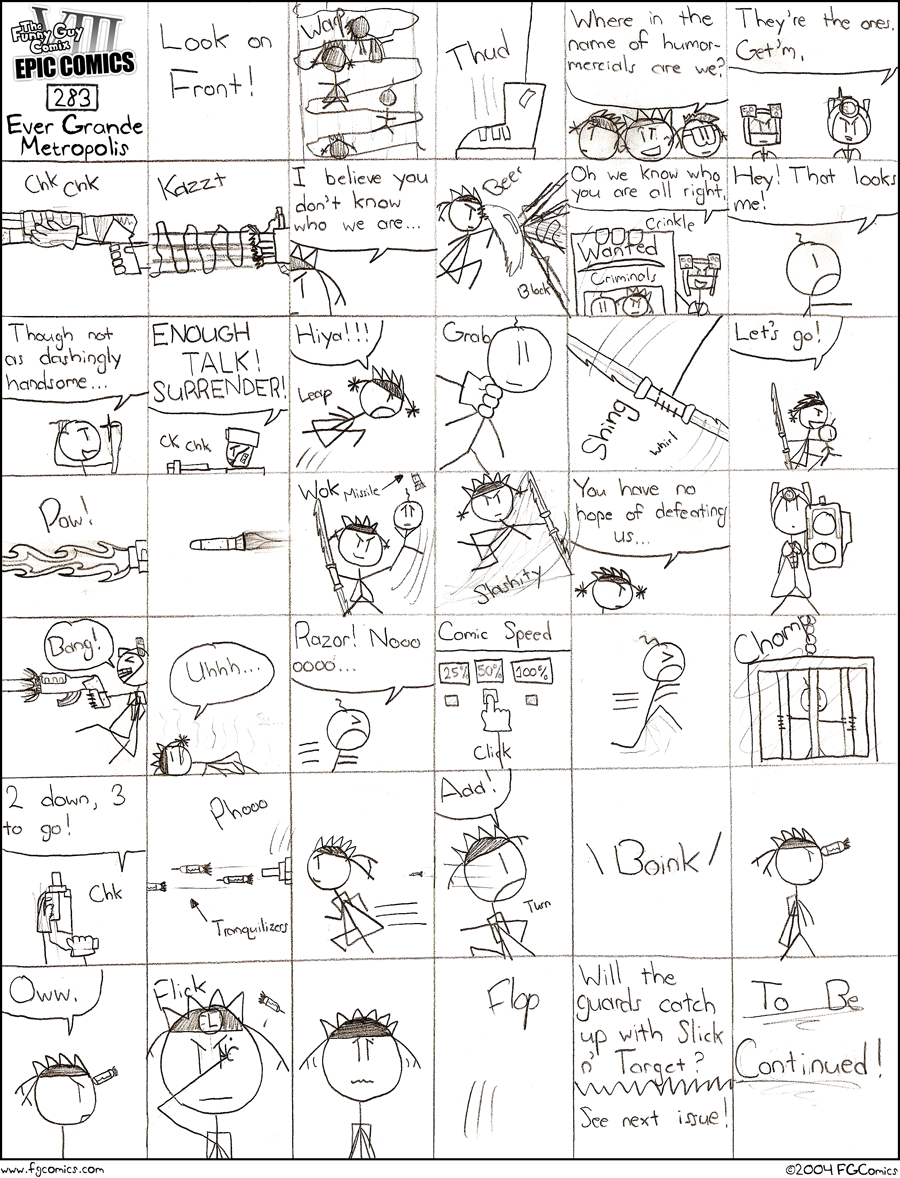 The
Funny Guy
Comix
VIII
EPIC COMICS
283
Ever Grande
Metropolis
Look on
Front!
Warp
Thud
Where in the
name of humor-
mercials are we?
They're the ones.
Get'm,
Chk Chk
Kazzt
I believe you
don't know
who we are...
Beer
Block
Oh we know who
you are all right,
Crinkle
Wanted
Criminals
Hey! That looks
me!
Though not
as dashingly
handsome...
ENOUGH
TALK!
SURRENDER!
CK Chk
Hiya!!!
Leap
Grab
Shing
Whirl
Let's go!
Pow!
Wok
Missile
Slashity
You have no
hope of defeating
us...
Bang!
Uhhh...
Sss...
Razor! Nooo
oooo...
Comic Speed
25% 50% 100%
Click
Chomp
2 down, 3
to go!
Chk
Phooo
Tranquilizers
Add!
Turn
\ Boink /
Oww.
Flick
L
Flop
Will the
guards catch
up with Slick
n' Target?
See next issue!
To Be
Continued!
www.fgcomics.com
©2004 FGComics